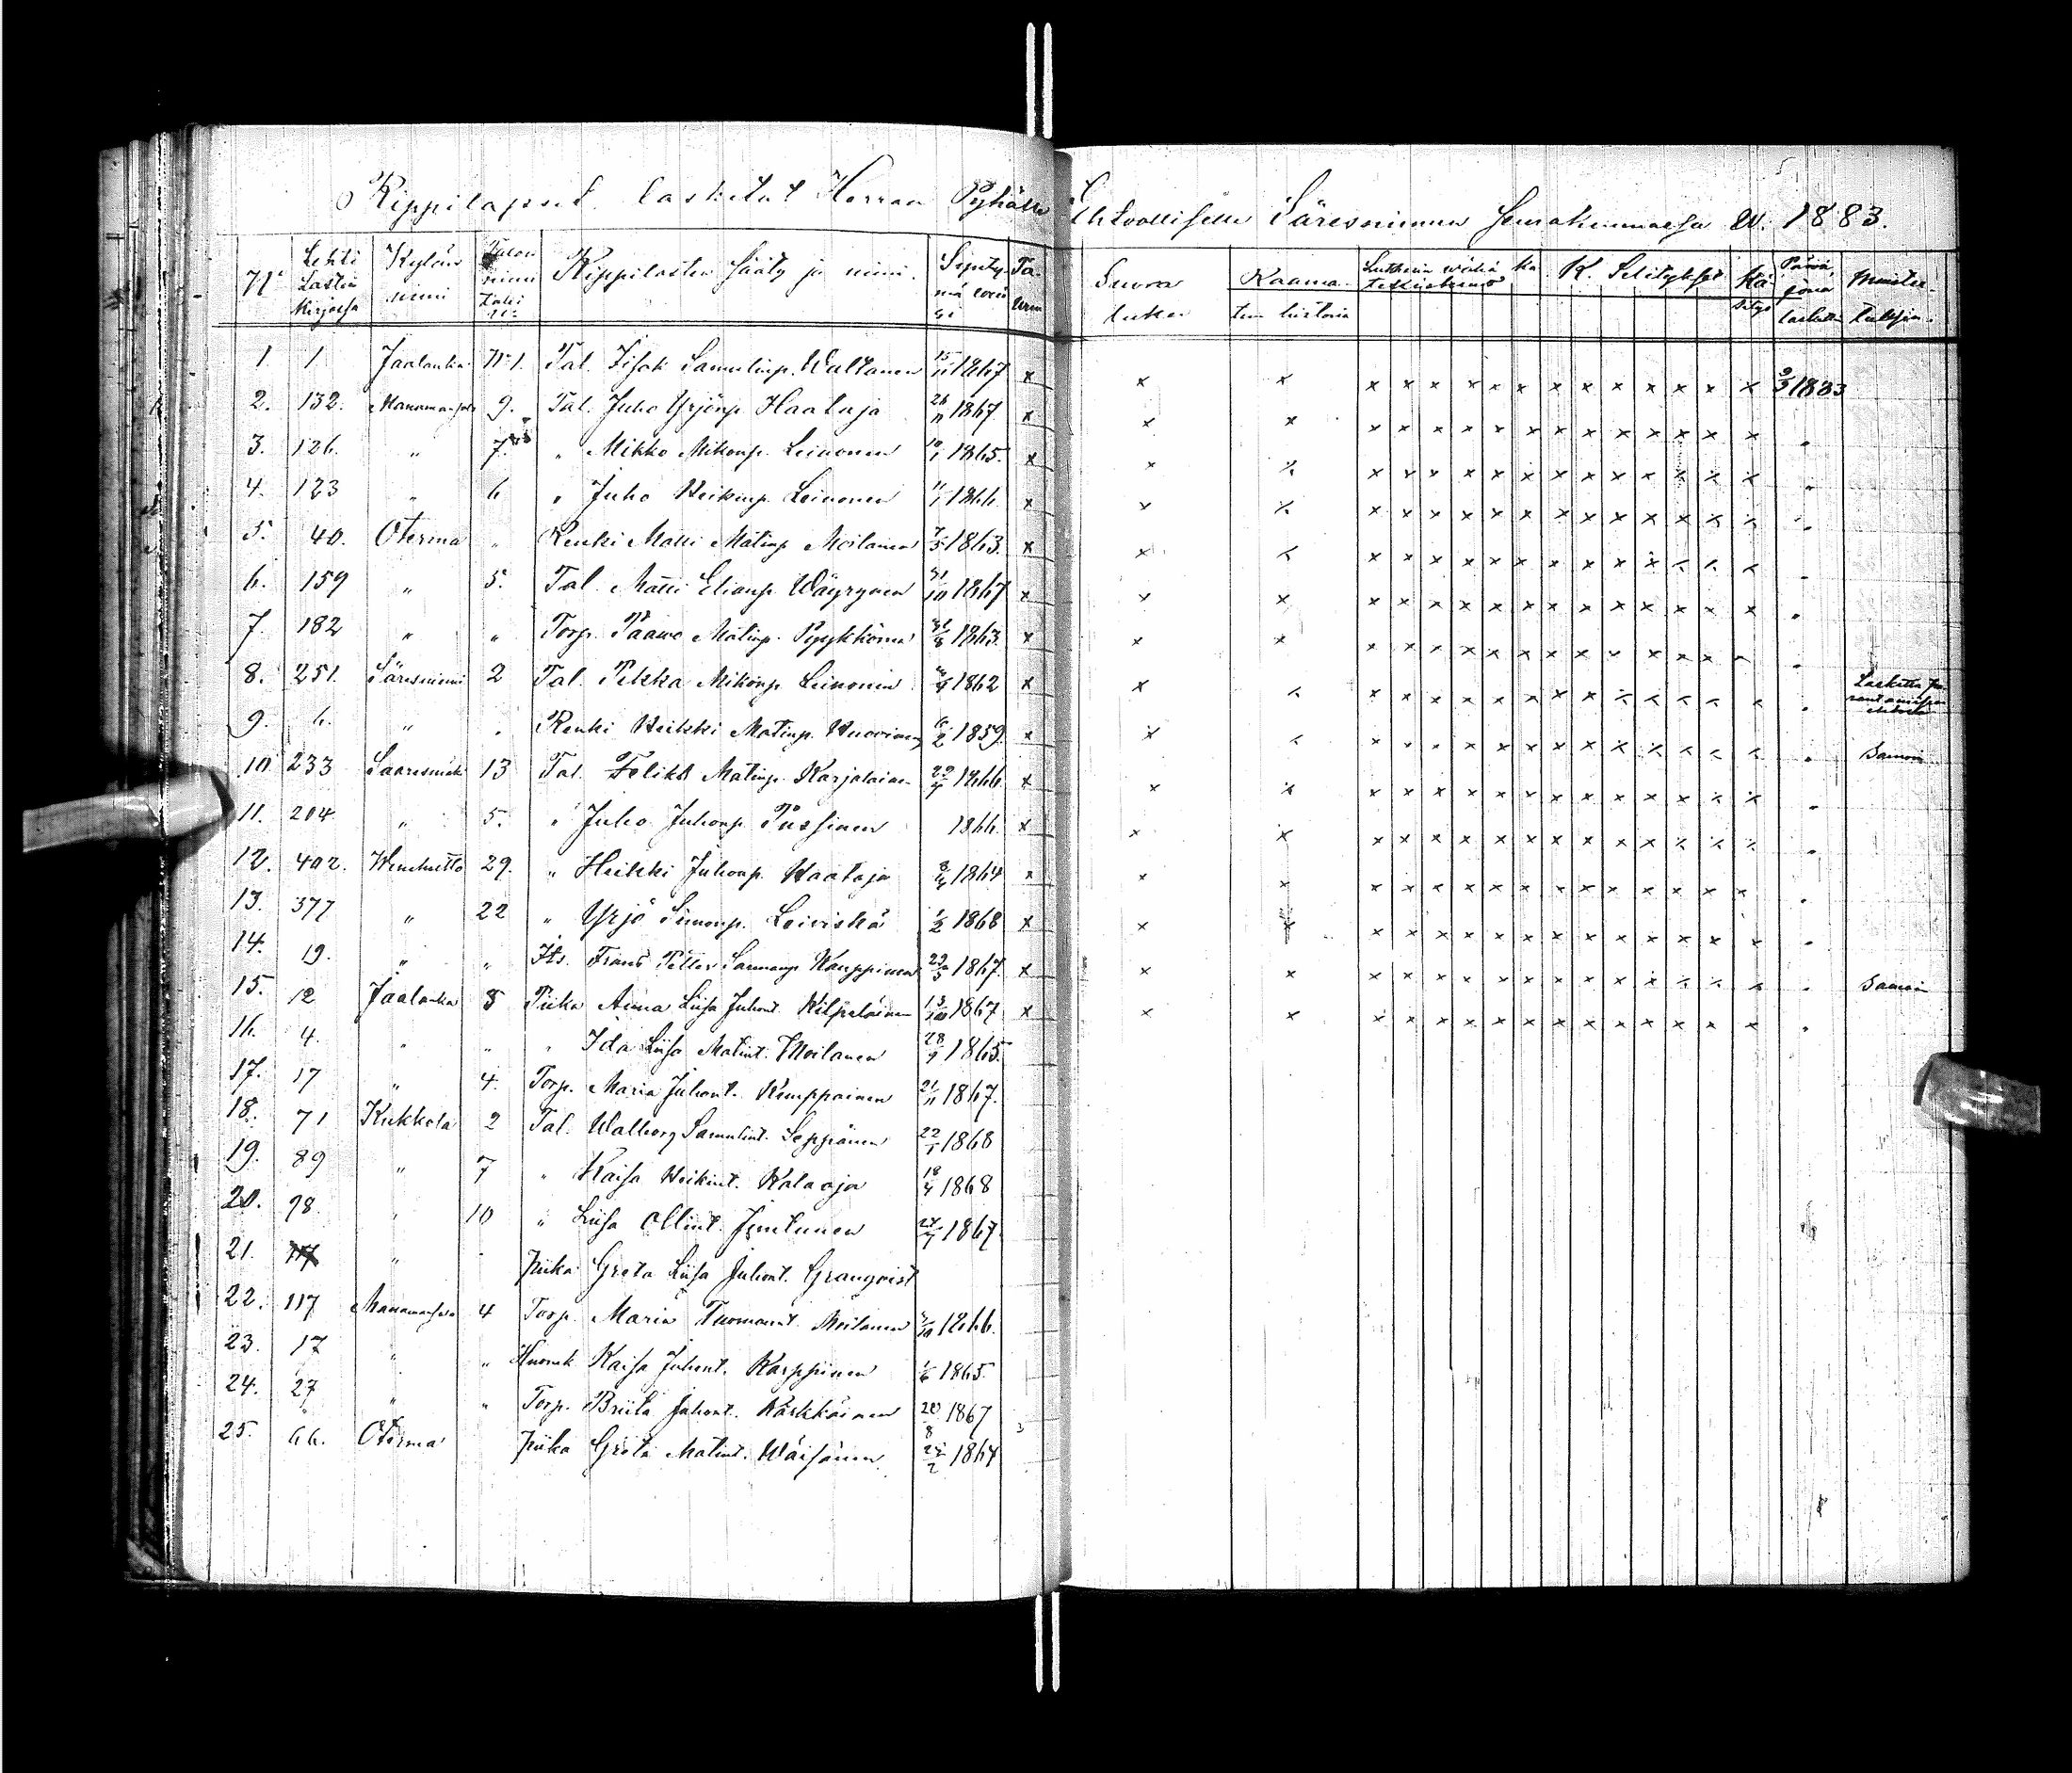 Rippilapset lasketut Herran Pyhälle Ehtoolliselle Säresniemen seurakunnassa W. 1883.
N:o Lehti Lastin kirjassa Kylän nimi Talon nimi tahi N:o Rippilasten sääty ja nimi. Synty-mä Ta- Suora luku Raama-tun historia Lutherin wähä K. Selitykset Kä-sitys Päivä, jona laskettu Muistu-tuksia.
1. 1 Jaalanka N:o 1. Tal. Isak Samulinp. Waltanen 15/11 1867 x x x x x x x x x x x x x x x x 2/3 1883
2. 132. Manamansalo 9. Tal. Juho Yrjönp. Haataja 26/11 1867. x x x x x x x x x x x x x x x x
3. 126. " 7. " Mikko Mikonp. Leinonen 10/1 1865. x x x x x x x x x x x x x x x x "
4. 123 " 6 " Juho Heikinp. Leinonen 11/1 1866. x x x x x x x x x x x x x x x x "
5. 40. Oterma " Renki Matti Matinp. Moilanen 7/5 1863. x x x x x x x x x x x x x x x x
6. 159 " 5. Tal. Matti Elianp. Wäyrynen 31/10 1867 x x x x x x x x x x x x x x x x
7. 182 " " Torp. Paawo Matinp. Pyykkönen 31/8 1863. x x x x x x x x x x x x x x x x
8. 251. Säresniemi 2 Tal. Pekka Mikonp. Leinonen 1862 x x x x x x x x x x x x x x x x Laskettu
9. 6. " " Renki Heikki Matinp. Huovinen 6/2 1859. x x x x x x x x x x x x x x x x Samoin
10 233 Saaresmäki 13 Tal. Feliks Matinp. Karjalainen 1866. x x x x x x x x x x x x x x x x
11. 204 " 5. " Juho Juhonp. Pussinen 1866. x x x x x x x x x x x x x x x x
12. 402. Wenehetto 29. " Heikki Juhonp. Haataja 8/4 1864 x x x x x x x x x x x x x x x x
13. 377 " 22 " Yrjö Simonp. Leiviskä 1/2 1868 x x x x x x x x x x x x x x x x
14. 19. " " Its. Frans Petter Kauppinen 23/5 1867. x x x x x x x x x x x x x x x x Samoin
15. 12 Jaalanka 8 Piika Anna Liisa Juhont. Kilpeläinen 13/10 1867 x x x x x x x x x x x x x x x x
16. 4. " " " Ida Liisa Matint. Moilanen 28/9 1865.
17. 17 " 4. Torp. Maria Juhont. Kemppainen 21/11 1867.
18. 71 Kukkola 2 Tal. Walborg Samulint. Seppänen 22/1 1868
19. 89 " 7 " Kaisa Heikint. Kalaoja 18/4 1868
20. 98 " 10 " Liisa Ollint. Juntunen 1867
21. 117 " Piika Greta Liisa Juhont. Granqvist
22. 117 Manamansalo 4 Torp. Maria Tuomaant. Moilanen 1866.
23. 17 " " Huonek Kaisa Juhont. Karppinen 1/6 1865.
24. 27 " " Torp. Briita Juhont. Kärkkäinen 20/8 1867
25. 66. Oterma Piika Greta Matint. Wäisänen 1864